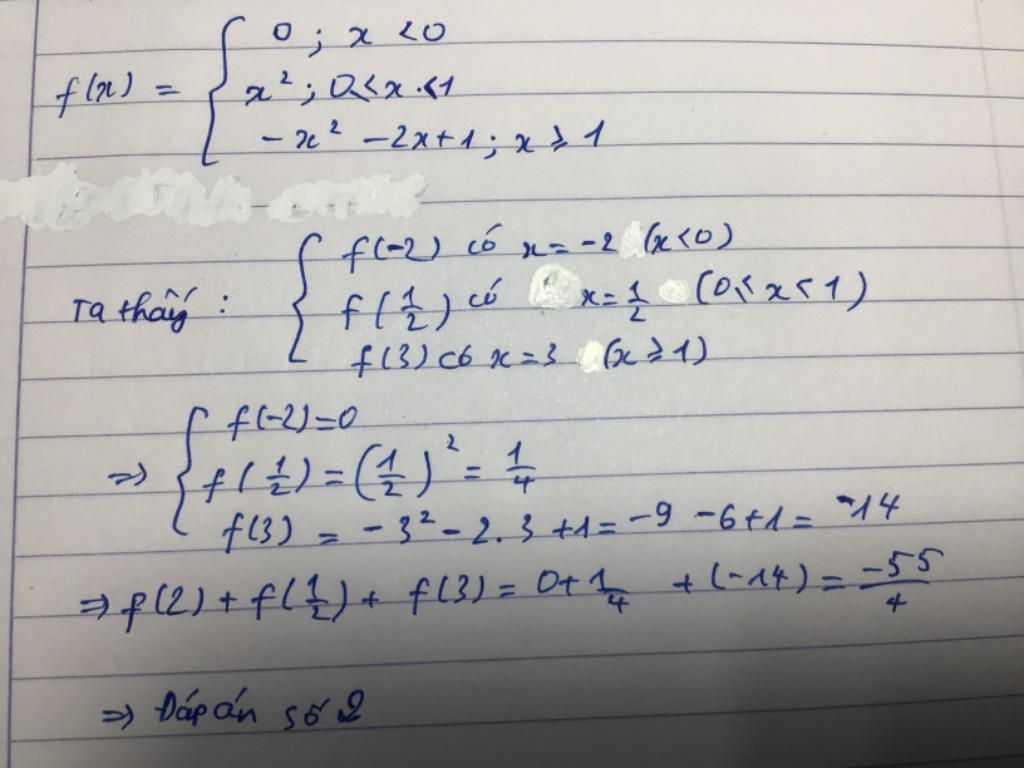 f(x) = { 0 ; x < 0
x² ; 0 ≤ x < 1
-x² - 2x + 1 ; x ≥ 1
Ta thấy : { f(-2) có x = -2 (x<0)
f(1/2) có x = 1/2 (0 ≤ x < 1)
f(3) có x = 3 (x ≥ 1)
=> { f(-2) = 0
f(1/2) = (1/2)² = 1/4
f(3) = -3² - 2.3 + 1 = -9 - 6 + 1 = -14
=> f(2) + f(1/2) + f(3) = 0 + 1/4 + (-14) = -55/4
=> Đáp án số 2